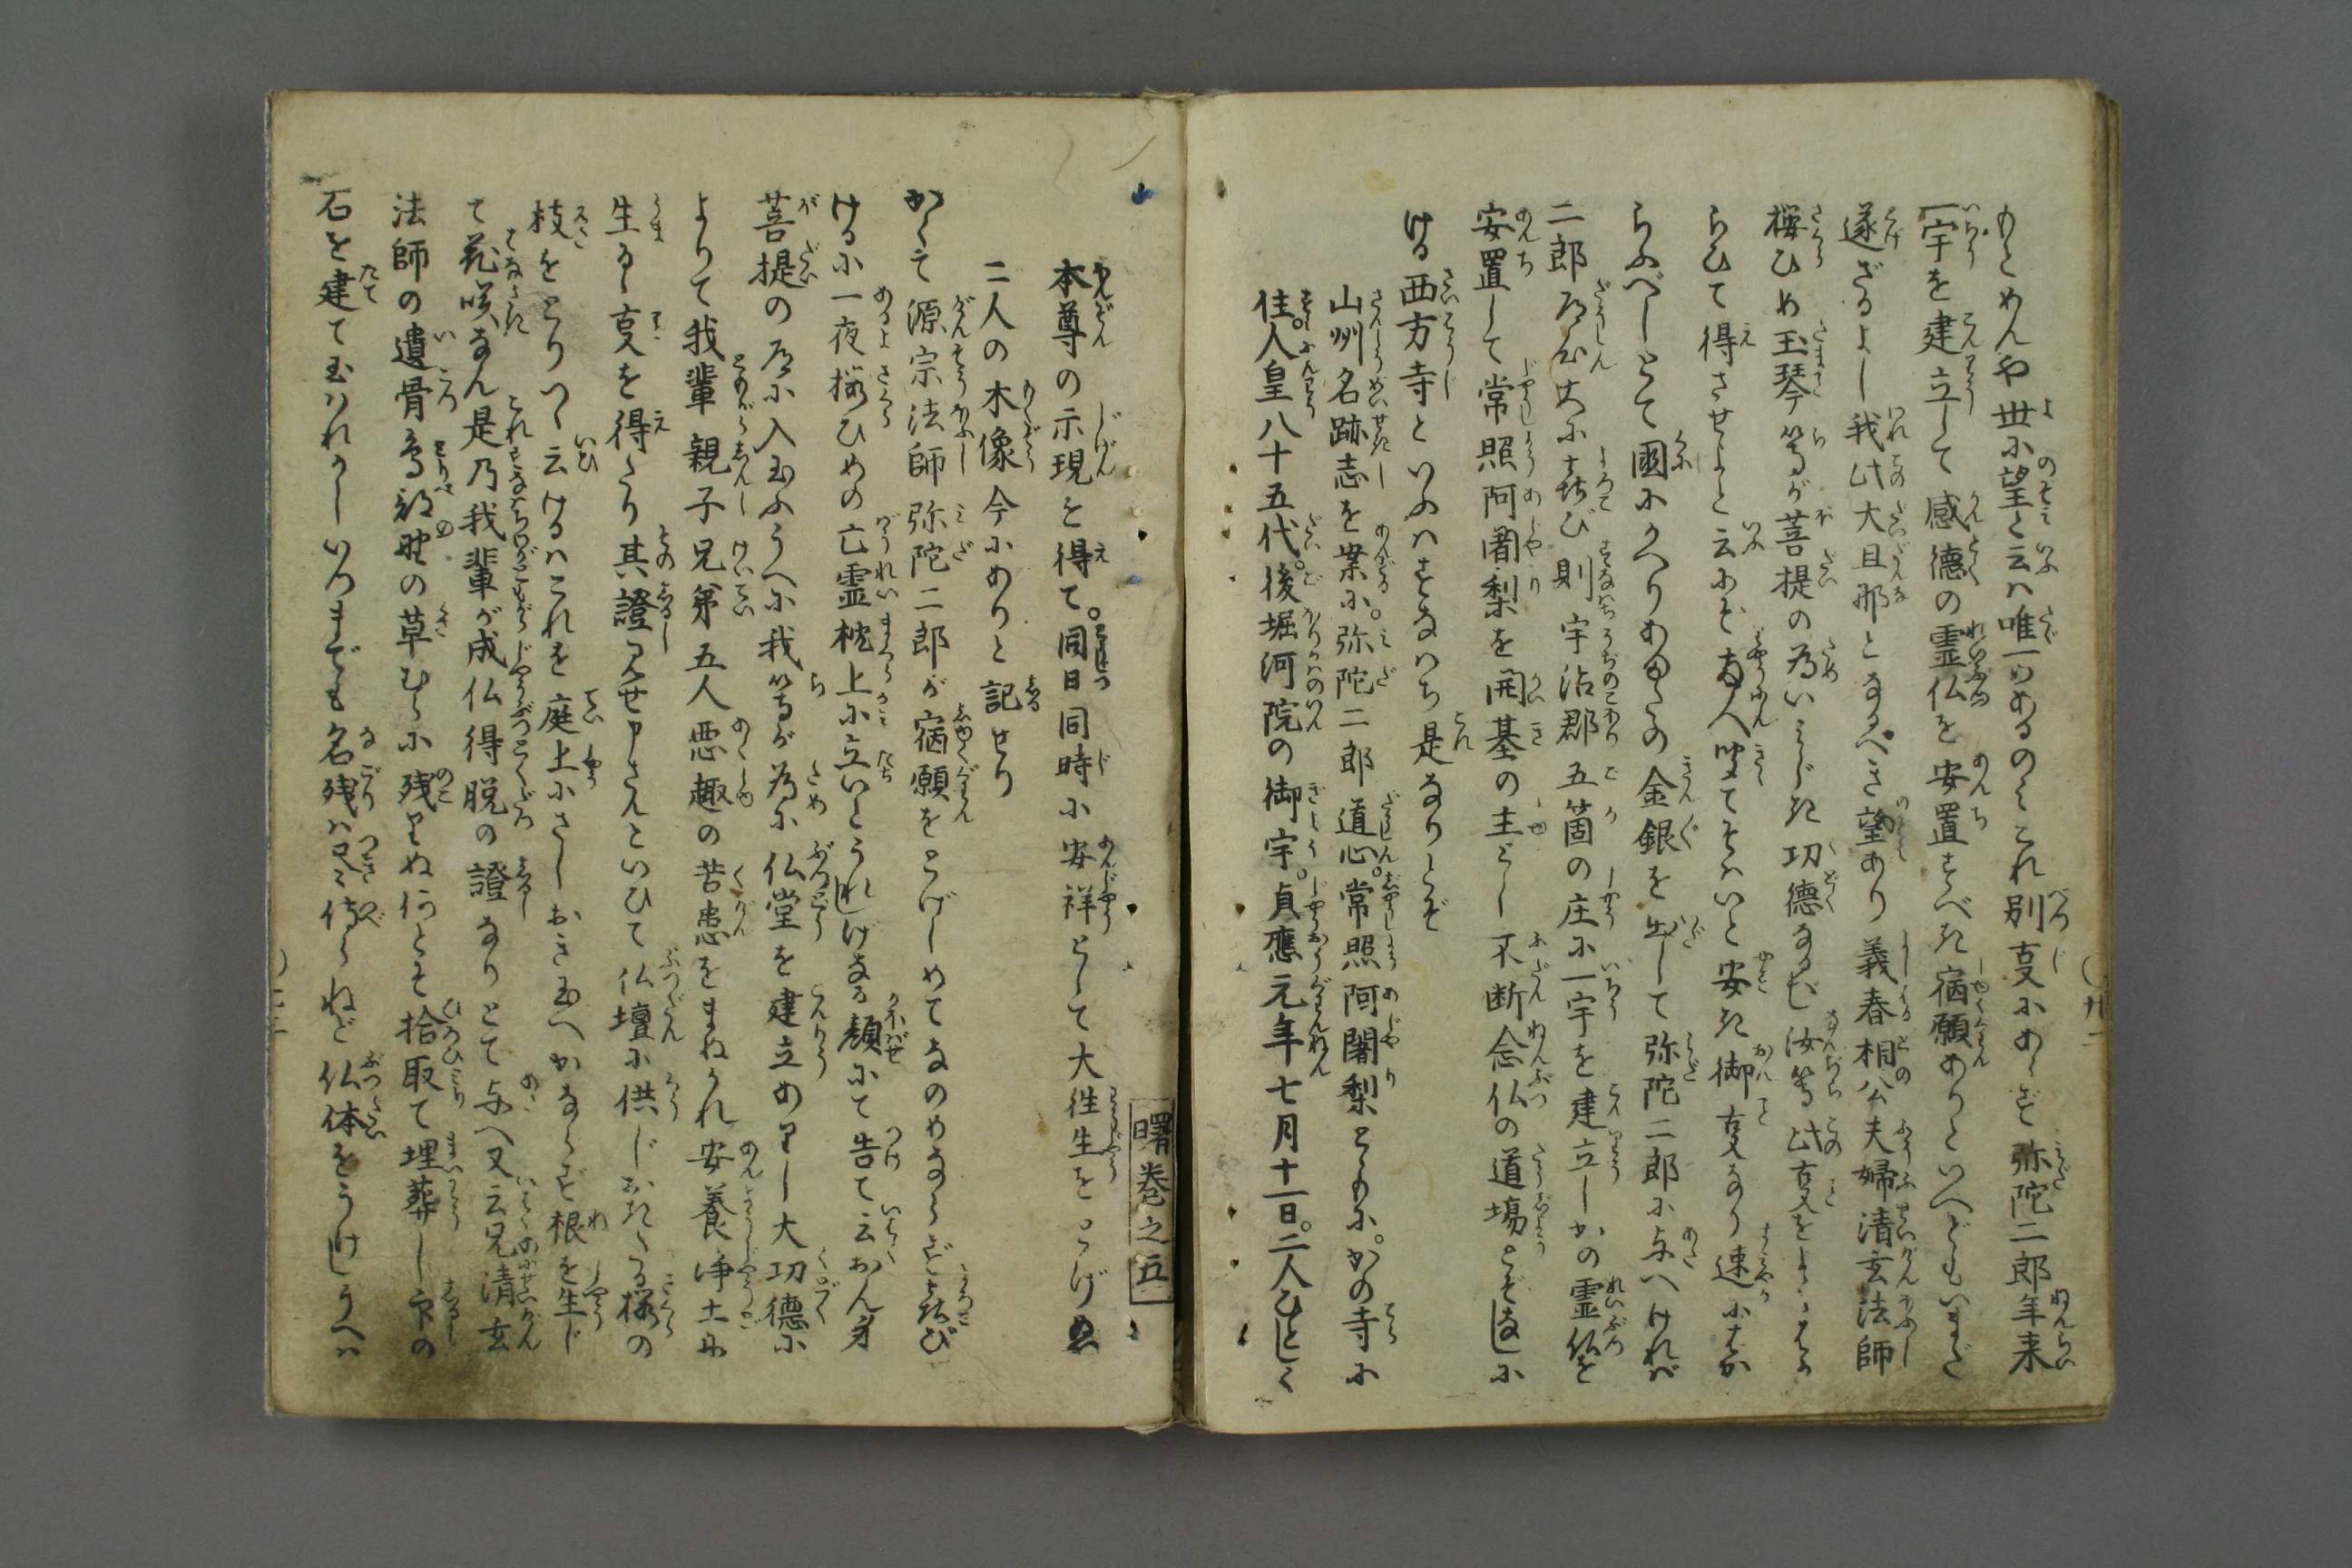 もとめんや世に望と云は唯一つあるのみこれ別事にあらず弥陀二郎年来
一宇を建立して感徳の霊仏を安置すべき宿願ありといへどもいまだ
遂ざるよし我此大旦那となるべき望あり義春相公夫婦清玄法師
桜ひめ玉琴等が菩提の為いみじき功徳なるぞ汝等此事をよくはか
らひて得させよと云にぞ両人聞てそはいと安き御事なり速にはか
らふべしとて国にかへりあまたの金銀を出して弥陀二郎に与へければ
二郎道心大に喜び則宇治郡五箇の庄に一宇を建立しかの霊仏を
安置して常照阿闍梨を開基の主とし不断念仏の道場とぞなしに
ける西方寺といふはすなはち是なりとぞ
山州名跡志を案に。弥陀二郎道心。常照阿闍梨ともに。かの寺に
住。人皇八十五代。後堀河院の御宇。貞應元年七月十一日。二人ひとしく
廿一
曙巻之五
本尊の示現を得て。同日同時に安祥として大徃生をとげぬ
二人の木像今にありと記せり
かくて源宗法師弥陀二郎が宿願をとげしめてなのめならず喜び
けるに一夜桜ひめの亡霊枕上に立いとうれしげなる顔にて告て云おん身
菩提の道に入玉ふうへに我等が為に仏堂を建立ありし大功徳に
よりて我輩親子兄弟五人悪趣の苦患をまぬかれ安養浄土に
生るゝ事を得たり其證見せ申さんといひて仏壇に供じおきたる桜の
枝をとりつゝ云けるはこれを庭上にさしおき玉へかならず根を生じ
て花咲なん是乃我輩が成仏得脱の證なりとて与へ又云兄清玄
法師の遺骨鳥部野の草むらに残りぬ何とぞ拾取て埋葬し印の
石を建て玉はれかしいつまでも名残は尽侍らねど仏体をうけしうへは